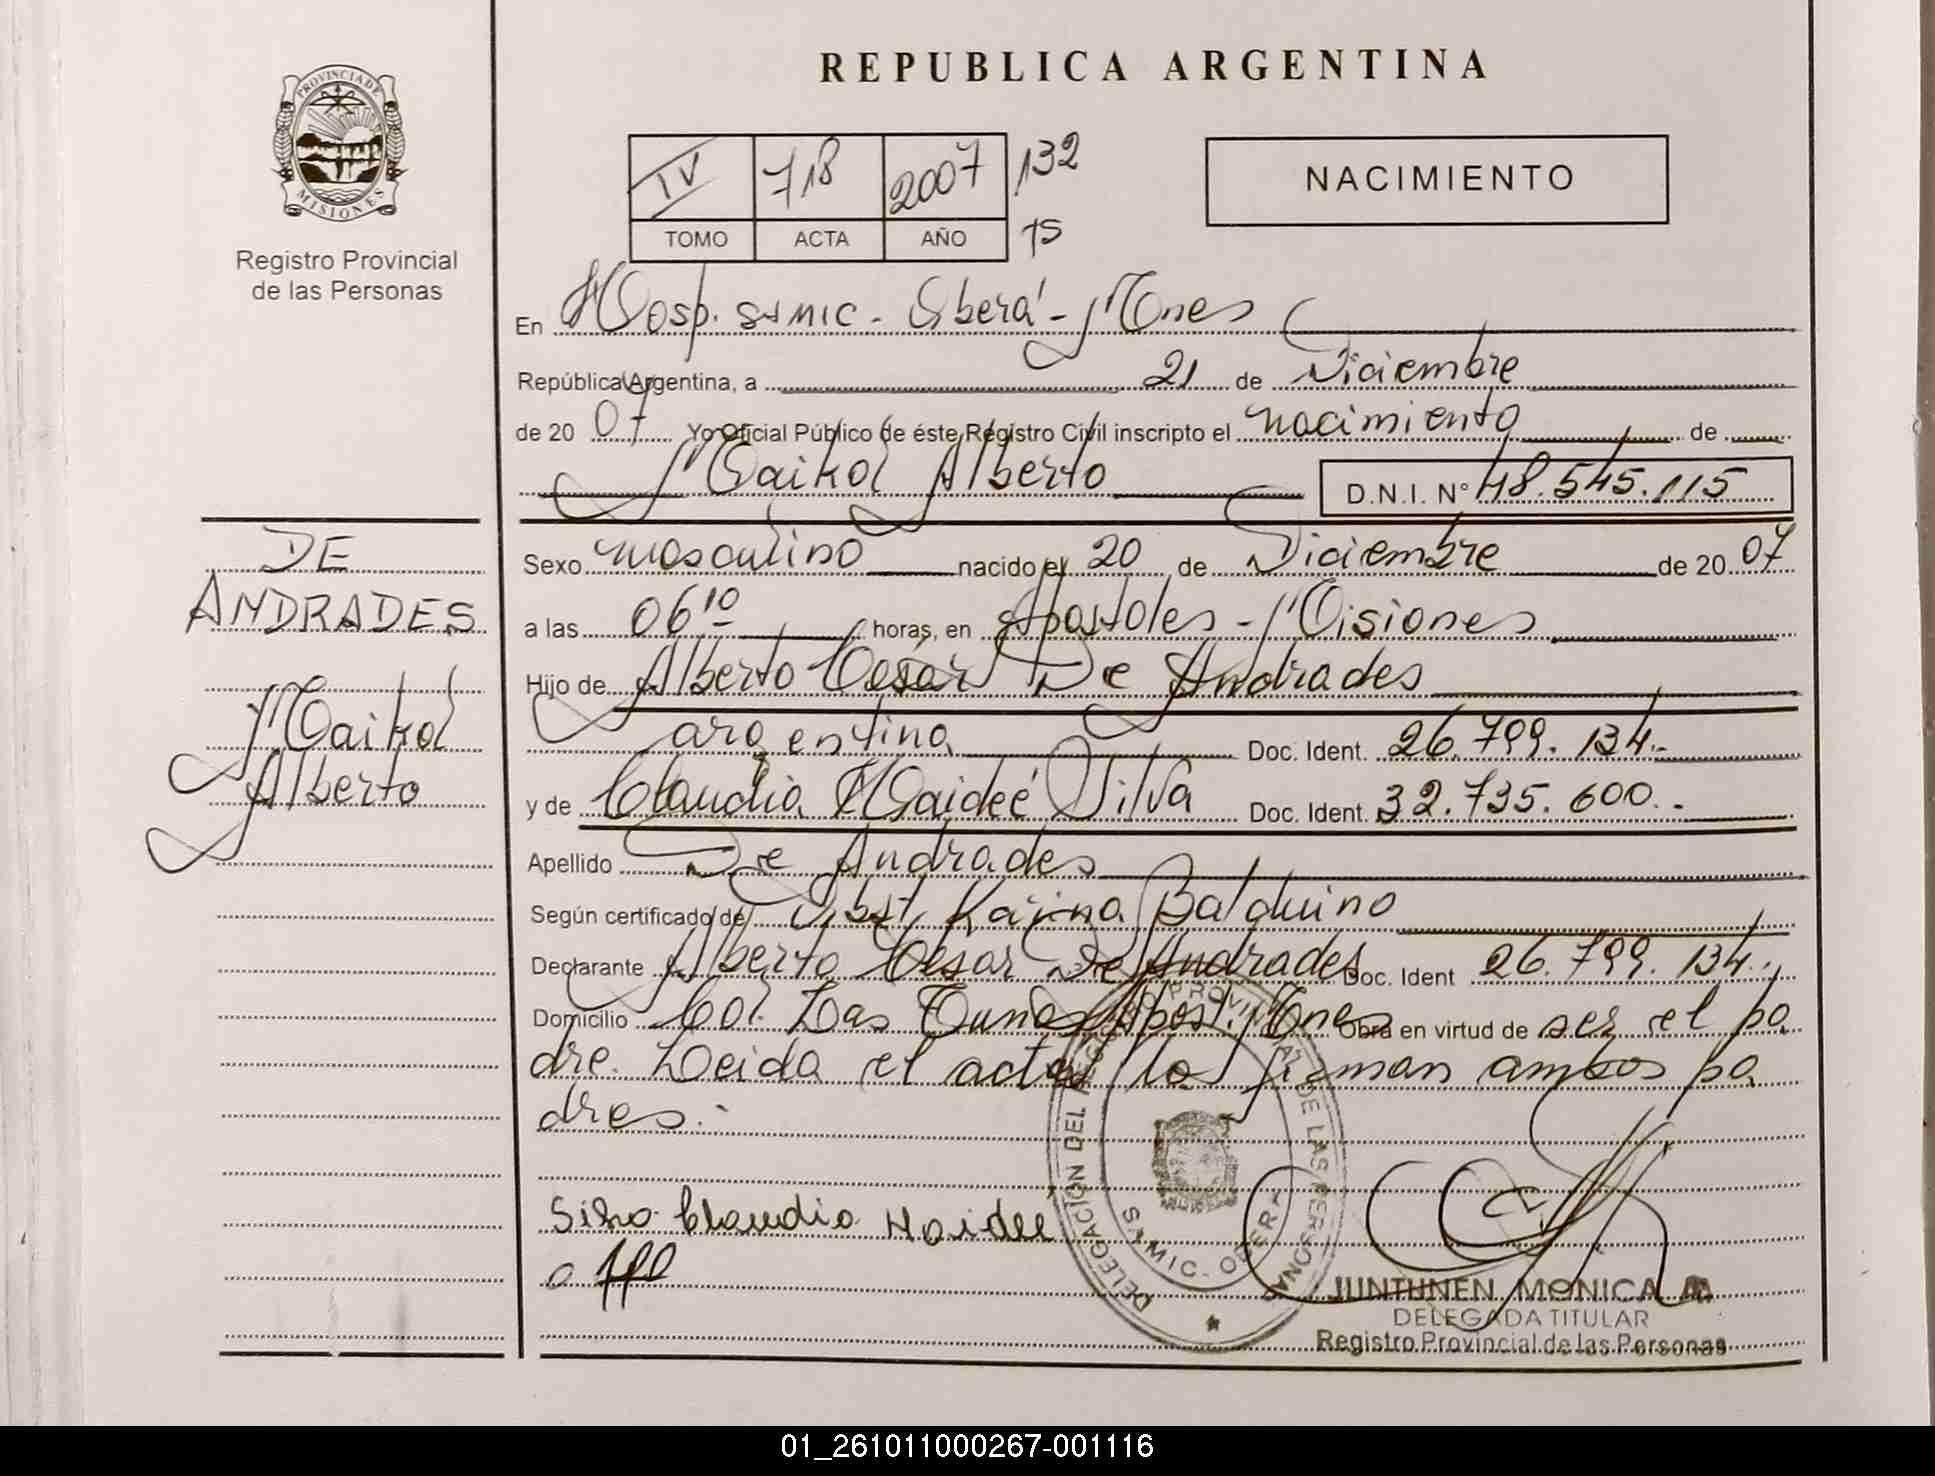 REPUBLICA ARGENTINA
PROVINCIA DE MISIONES
Registro Provincial
de las Personas
IV 718 2007 132
TOMO ACTA AÑO 75
NACIMIENTO
En Hosp. SAMIC - Oberá - Mnes
República Argentina, a 21 de Diciembre
de 2007 Yo Oficial Público de éste Registro Civil inscripto el nacimiento de
Maikol Alberto D.N.I. N° 48.545.115
DE
ANDRADES
Maikol
Alberto
Sexo masculino nacido el 20 de Diciembre de 2007
a las 06 10 horas, en Apóstoles - Misiones
Hijo de Alberto César De Andrades
argentina Doc. Ident. 26.799.134.-
y de Claudia Haideé Silva Doc. Ident. 32.735.600.-
Apellido De Andrades
Según certificado de Obst. Karina Balduino
Declarante Alberto César De Andrades Doc. Ident 26.799.134.
Domicilio Col. Las Tunas Apost. Mnes Obra en virtud de ser el pa
dre. Leida el acta, la firman ambos pa
dres.-
Silva Claudia Haidee
DELEGACIÓN DEL REGISTRO PROVINCIAL DE LAS PERSONAS
SAMIC - OBERÁ
JUNTUNEN MONICA A.
DELEGADA TITULAR
Registro Provincial de las Personas
01_261011000267-001116